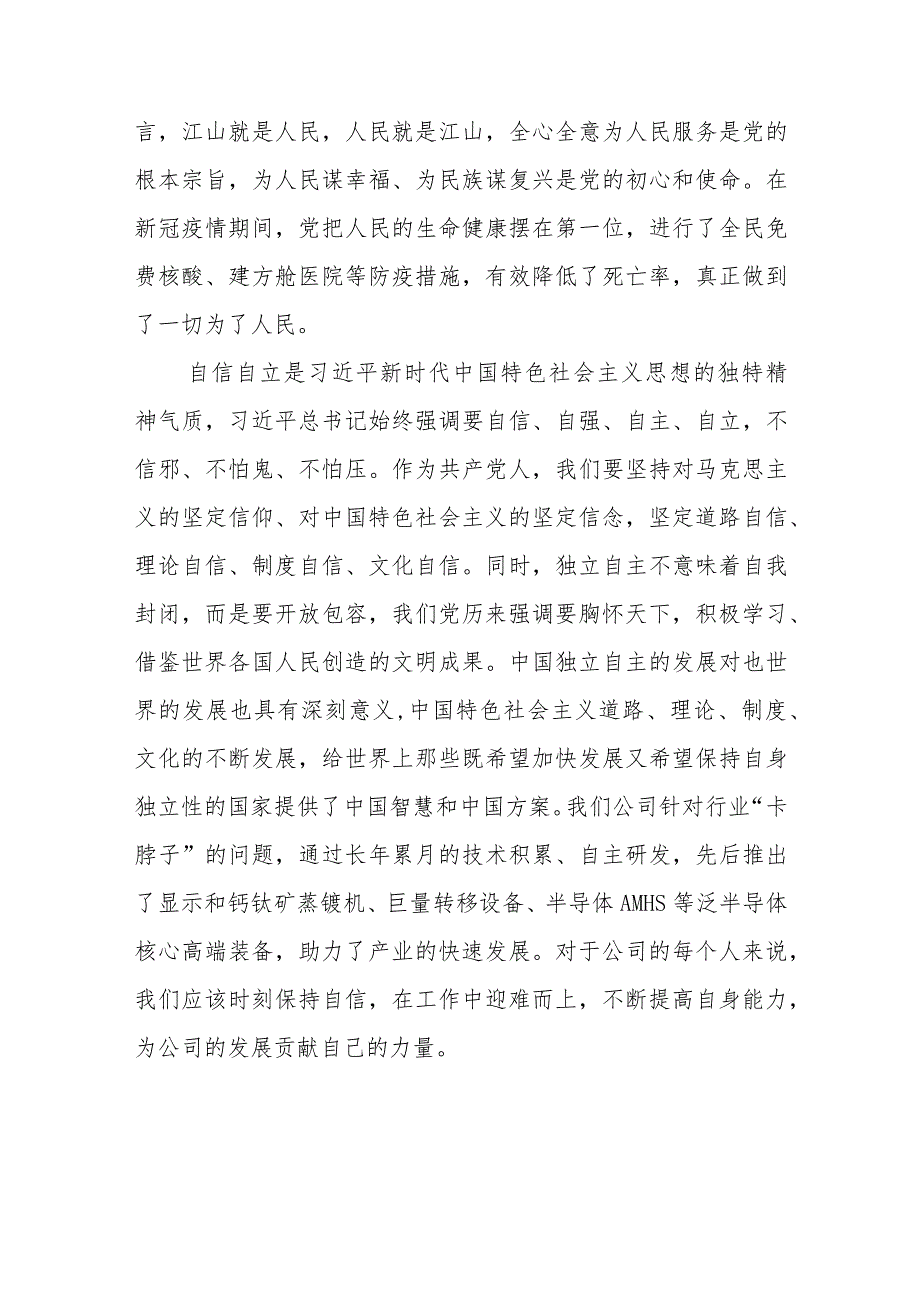 言，江山就是人民，人民就是江山，全心全意为人民服务是党的
根本宗旨，为人民谋幸福、为民族谋复兴是党的初心和使命。在
新冠疫情期间，党把人民的生命健康摆在第一位，进行了全民免
费核酸、建方舱医院等防疫措施，有效降低了死亡率，真正做到
了一切为了人民。
自信自立是习近平新时代中国特色社会主义思想的独特精
神气质，习近平总书记始终强调要自信、自强、自主、自立，不
信邪、不怕鬼、不怕压。作为共产党人，我们要坚持对马克思主
义的坚定信仰、对中国特色社会主义的坚定信念，坚定道路自信、
理论自信、制度自信、文化自信。同时，独立自主不意味着自我
封闭，而是要开放包容，我们党历来强调要胸怀天下，积极学习、
借鉴世界各国人民创造的文明成果。中国独立自主的发展对也世
界的发展也具有深刻意义,中国特色社会主义道路、理论、制度、
文化的不断发展，给世界上那些既希望加快发展又希望保持自身
独立性的国家提供了中国智慧和中国方案。我们公司针对行业“卡
脖子”的问题，通过长年累月的技术积累、自主研发，先后推出
了显示和钙钛矿蒸镀机、巨量转移设备、半导体 AMHS 等泛半导体
核心高端装备，助力了产业的快速发展。对于公司的每个人来说，
我们应该时刻保持自信，在工作中迎难而上，不断提高自身能力，
为公司的发展贡献自己的力量。